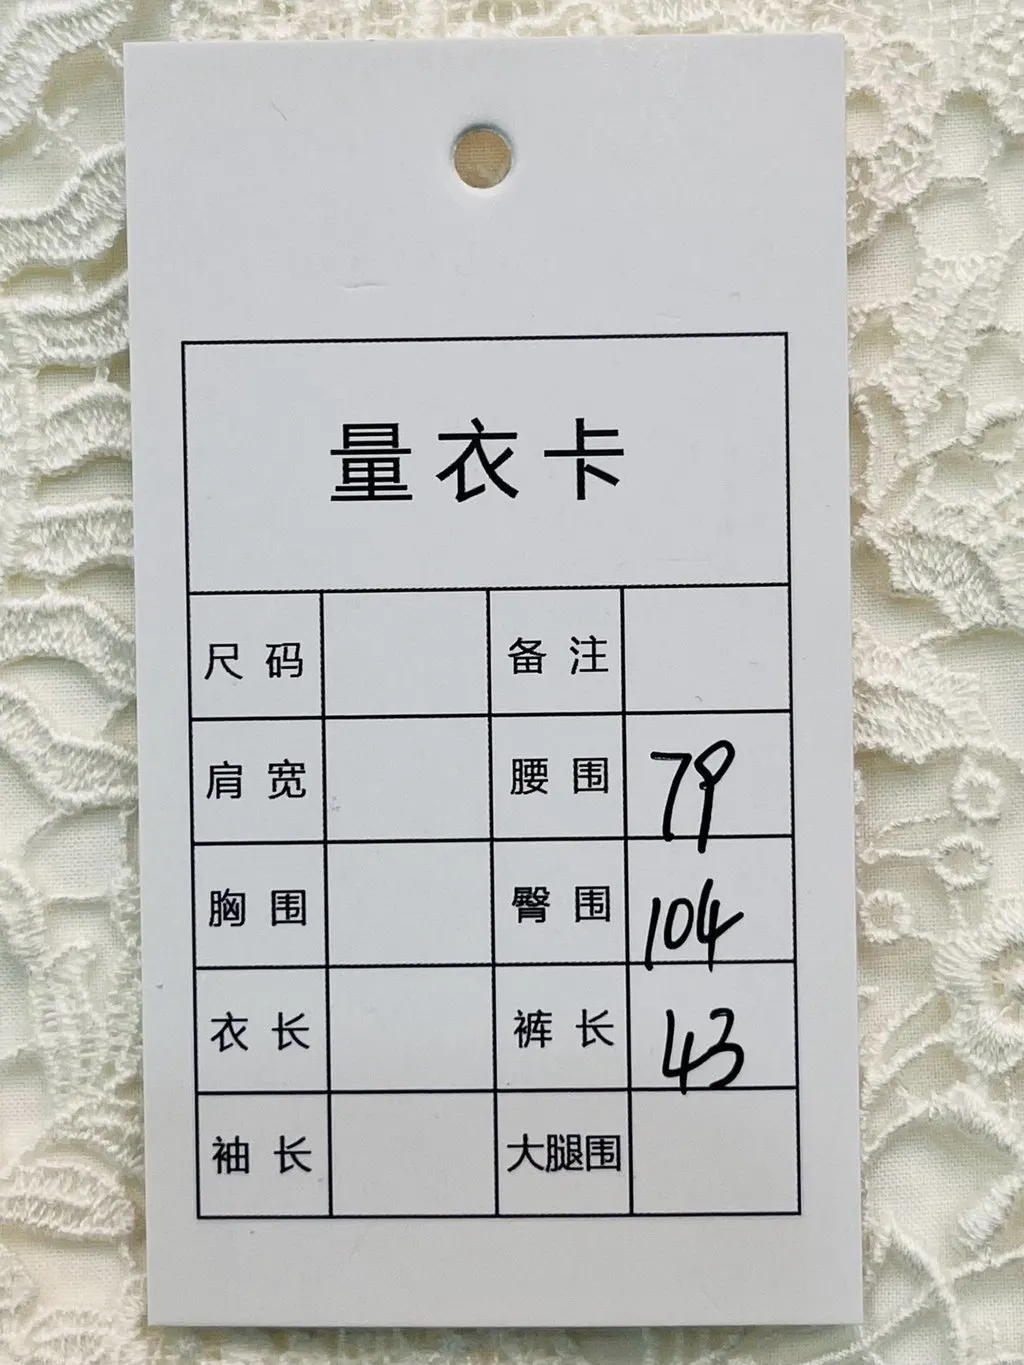 量衣卡
尺码 备注
肩宽 腰围 79
胸围 臀围 104
衣长 裤长 43
袖长 大腿围